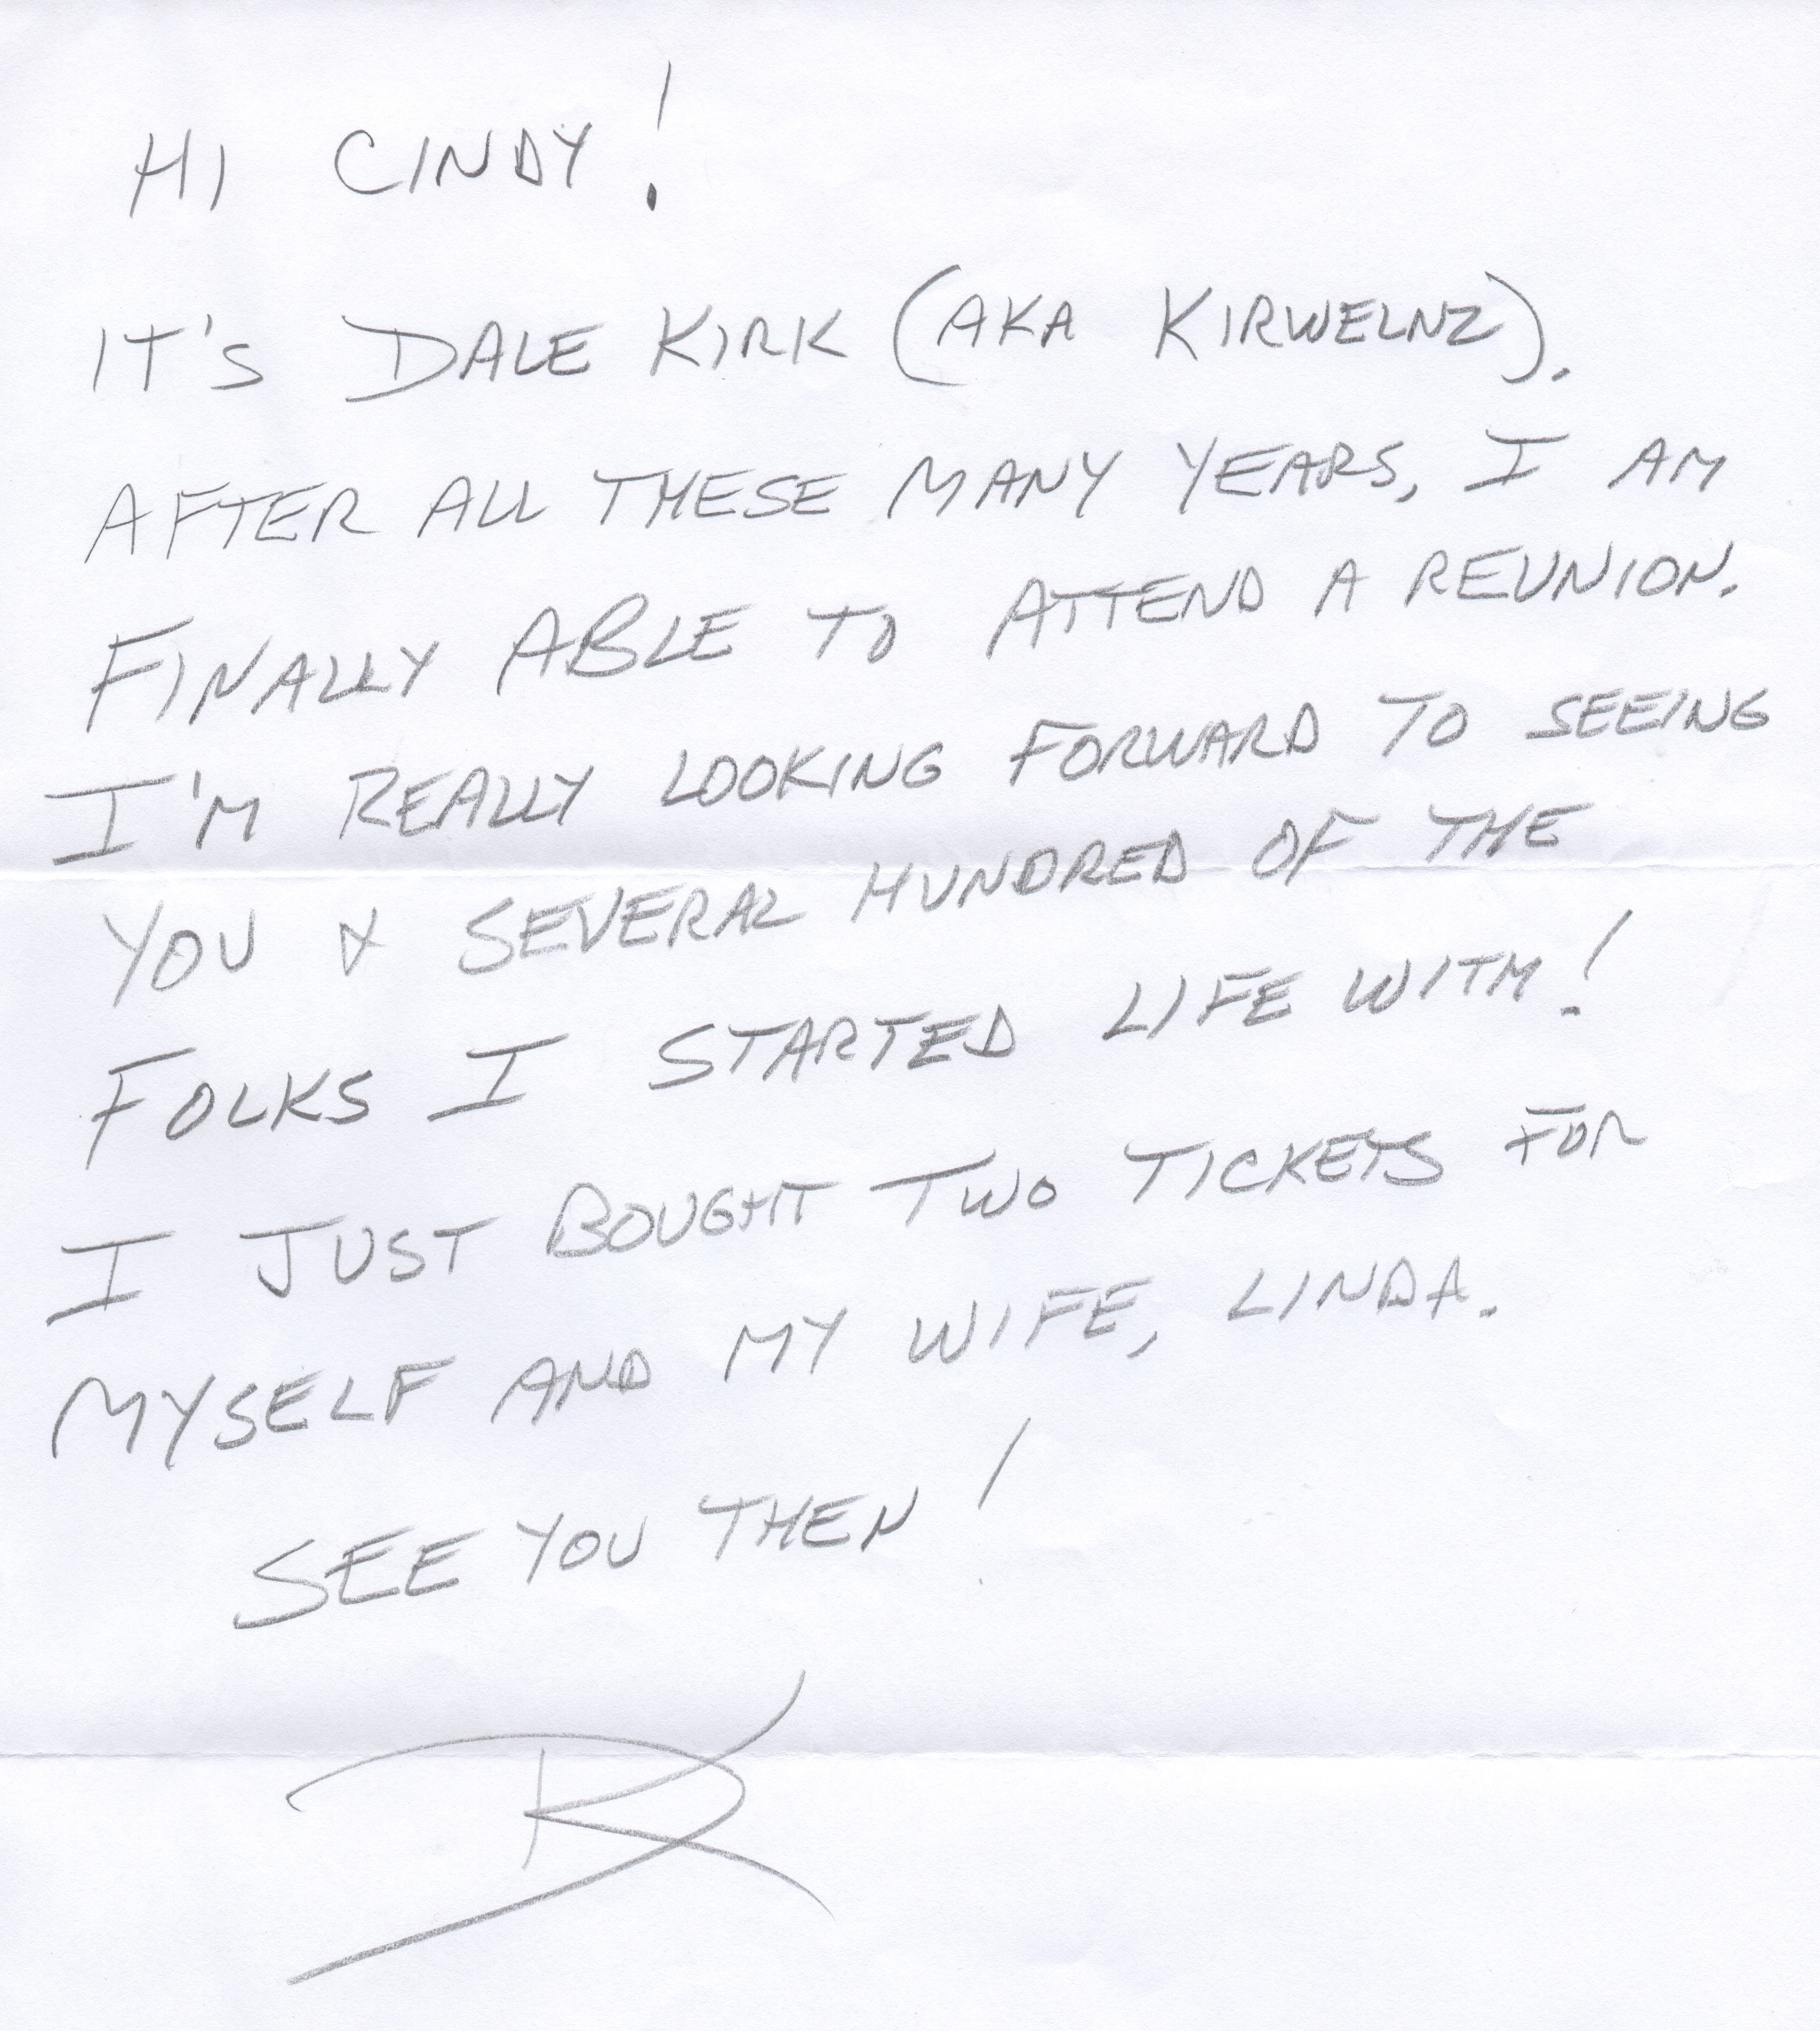 HI CINDY!
IT'S DALE KIRK (AKA KIRWELNZ).
AFTER ALL THESE MANY YEARS, I AM
FINALLY ABLE TO ATTEND A REUNION.
I'M REALLY LOOKING FORWARD TO SEEING
YOU & SEVERAL HUNDRED OF THE
FOLKS I STARTED LIFE WITH!
I JUST BOUGHT TWO TICKETS FOR
MYSELF AND MY WIFE, LINDA.
SEE YOU THEN!
DK